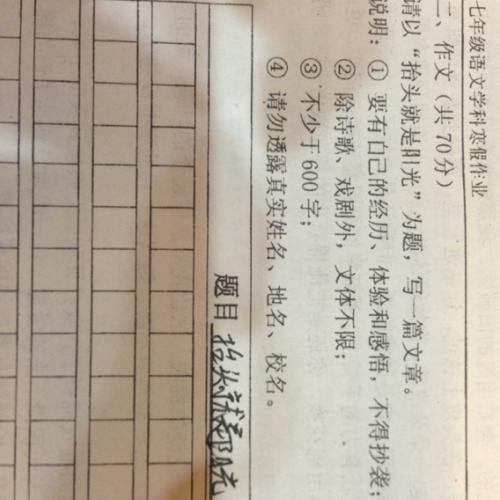 七年级语文学科寒假作业
二、作文（共70分）
请以“抬头就是阳光”为题，写一篇文章。
说明：① 要有自己的经历、体验和感悟，不得抄袭；
② 除诗歌、戏剧外，文体不限；
③ 不少于600字；
④ 请勿透露真实姓名、地名、校名。
题目 抬头就是阳光